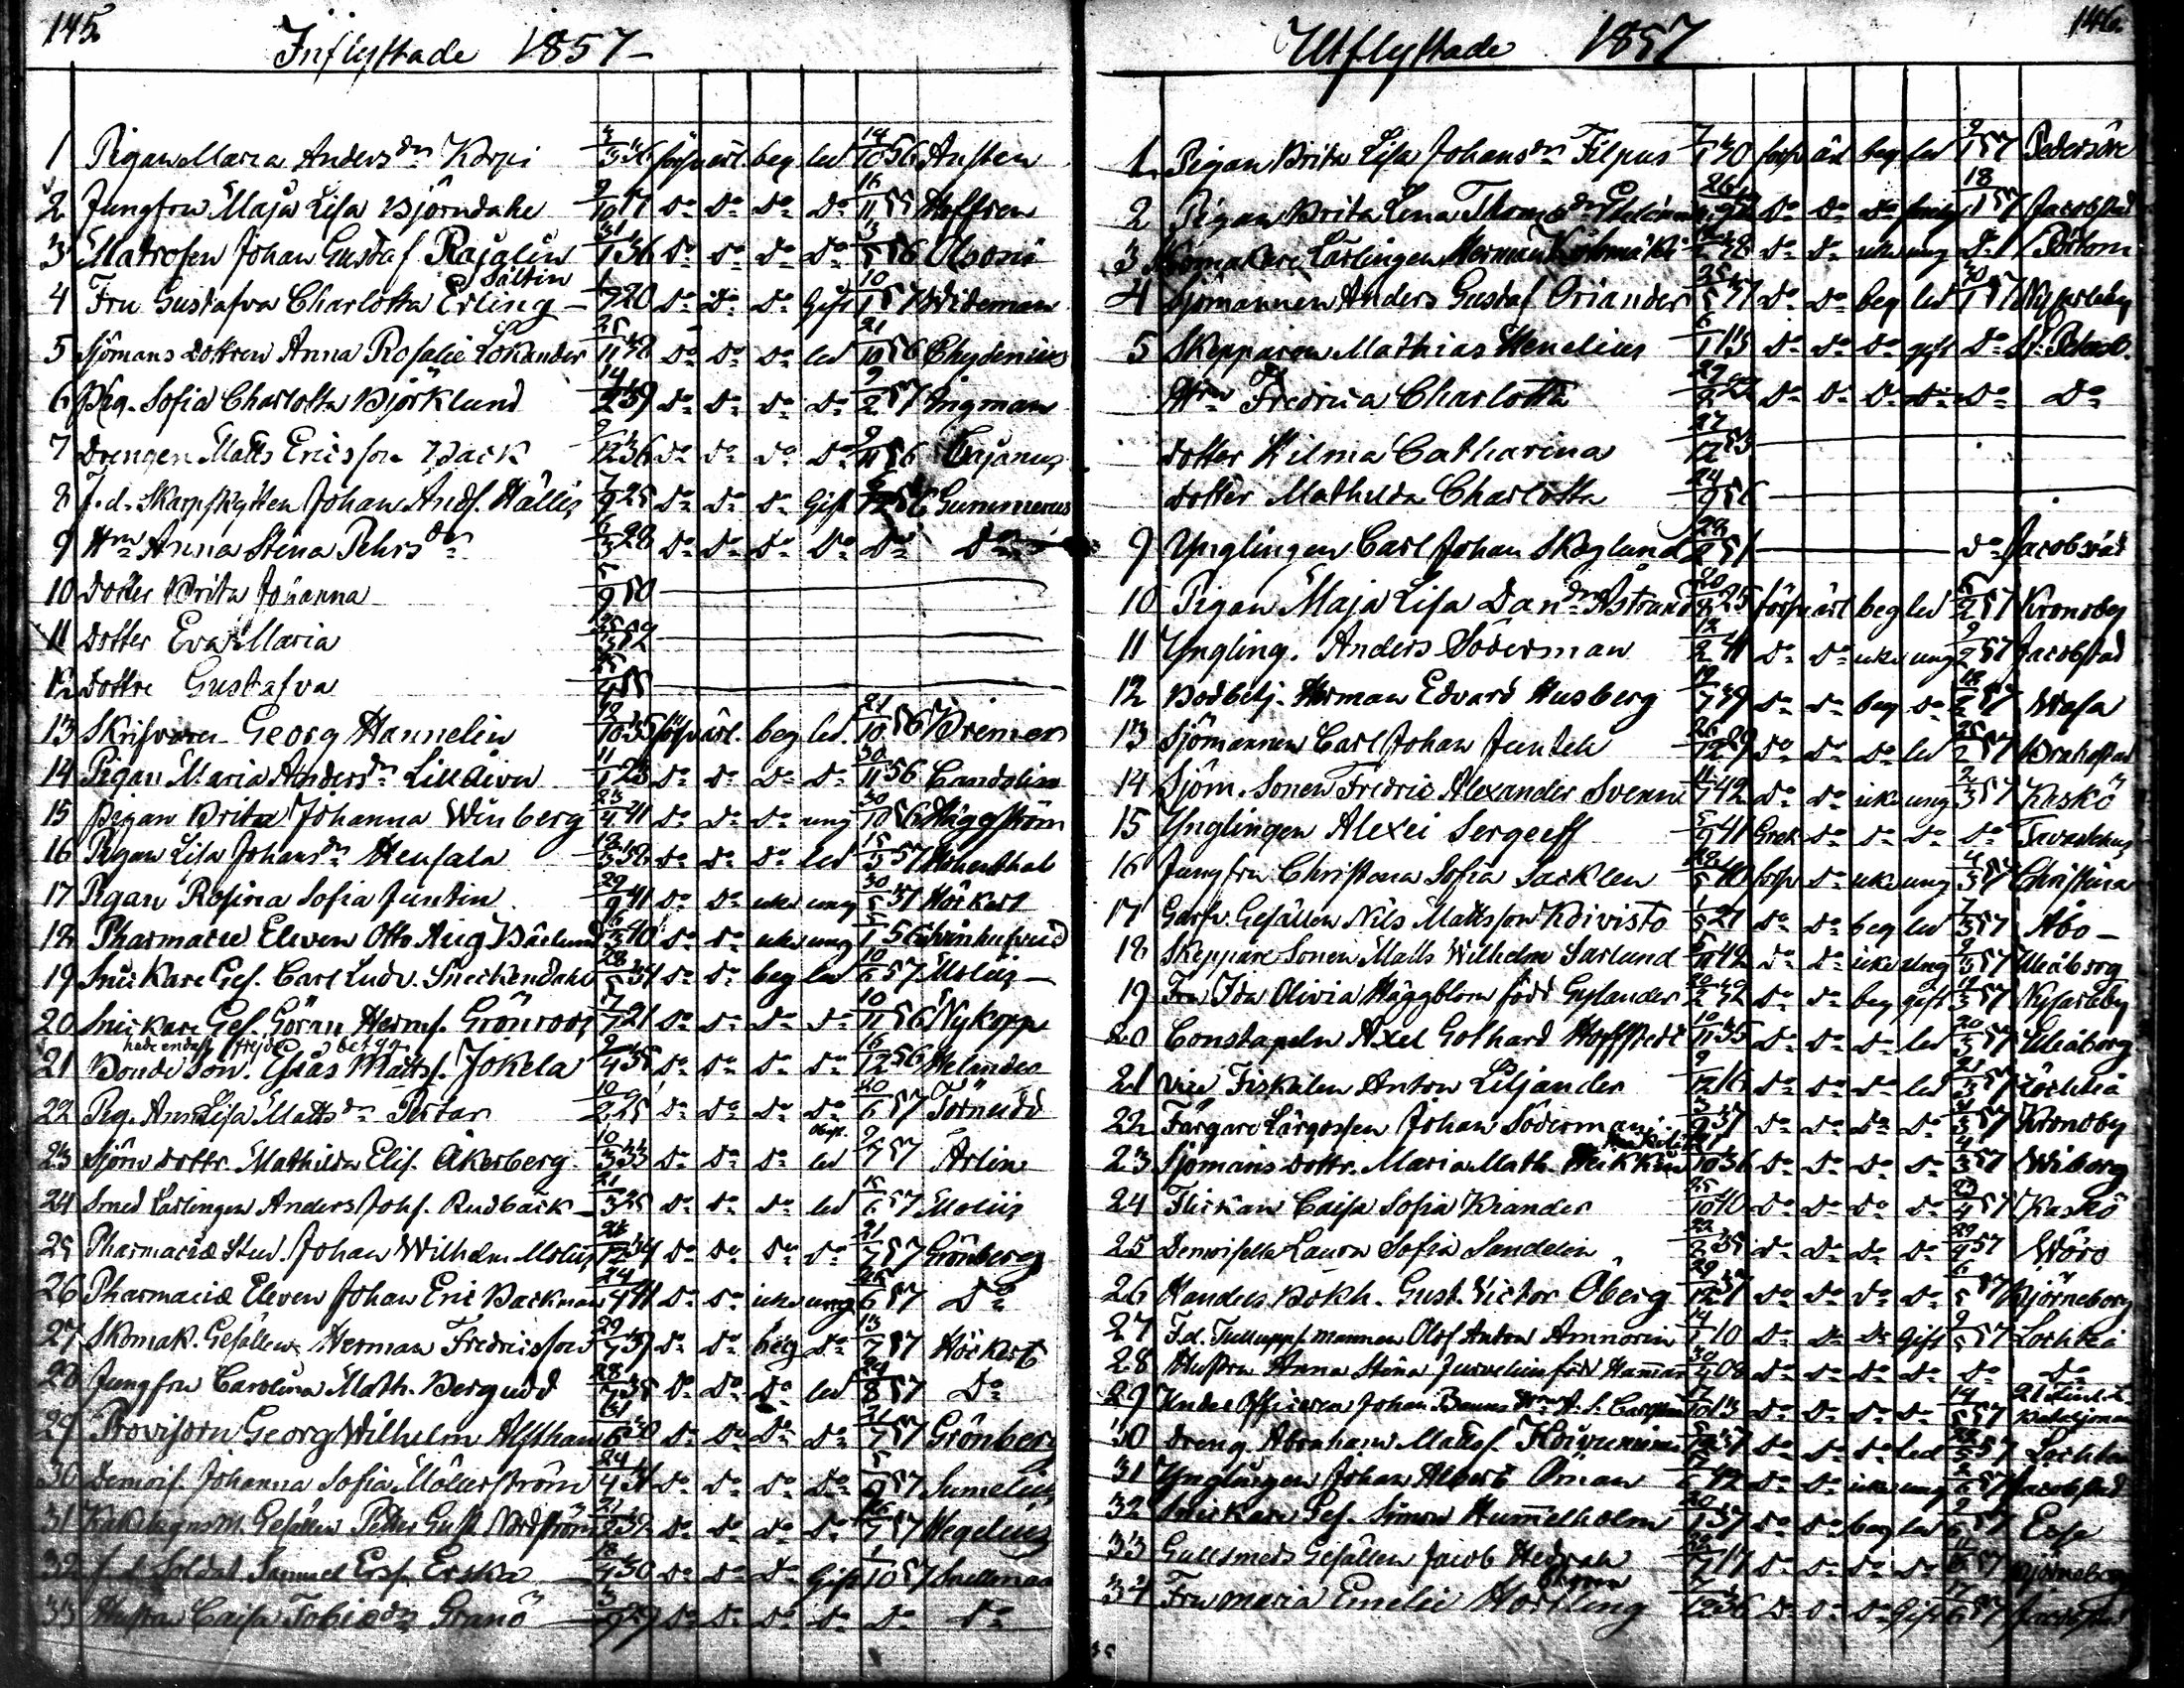 145
Inflyttade 1857
1 Pigan Maria Anders dr Korpi 36 försv ärl. beg led 14/10 56 Austen
2 Jungfru Maja Lisa Björndahl 9/10 17 Do Do Do Do 16/11 55 Hoffren
3 Matrosen Johan Gustaf Rajalin 31/1 36 Do Do Do Do 3/5 56 Olsoni
Sältin
4 Fru Gustafva Charlotta Erling 20 Do Do Do Gift 10/1 57 Wideman
5 Sjömans dottren Anna Rosalie Lokander 25/11 38 Do Do Do led 21/10 56 Chydenius
6 Pig. Sofia Charlotta Björklund 14/2 39 Do Do Do Do 9/2 57 Ingman
7 Drengen Matts Ericsson Back 9/12 36 Do Do Do Do 9/11 56 Cajanus
8 F.d. Skarpskytten Johan Ands. Hällis 7/9 25 Do Do Do Gift 56 Gummerus
9 Hru Anna Stina Pehrs dr 6/3 28 Do Do Do Do Do Do
10 Dotter Brita Johanna 5/9 50
11 Dotter Eva Maria 52
12 Dottre Gustafva 25/4 55
13 Skrifvaren Georg Hannelin 12/10 35 försv ärl. beg led. 21/10 56 Bremer
14 Pigan Maria Anders dr Lilldivn 11/1 23 Do Do Do Do 30/11 56 Candelin
15 Pigan Brita Johanna Winberg 23/4 41 Do Do Do ung 30/10 56 Häggström
16 Pigan Lisa Johans dr Heusala 12/3 38 Do Do Do led 15/5 57 Hohenthal
17 Pigan Rosina Sofia Juntin 29/9 41 Do Do uku ung 30/5 57 Höckert
18 Pharmacie Eleven Otto Aug Bärlund 6/3 40 Do Do uku ung 5/1 56
19 Snickare Ges. Carl Ludv. Sneckendahl 28/5 34 Do Do beg led 10/6 57 Molis
20 Snickare Ges. Göran Herms. Grönroos 17/7 21 Do Do Do Do 10/11 56 Nykopp
hade endast frejde betyg
21 Bonde Son. Esias Matts. Jokela 9/4 35 Do Do Do Do 16/12 56 Helander
22 Pig. Anna Lisa Matts dr Pertar 10/2 25 Do Do Do Do 10/6 57 Törnudd
23 Sjöm dottr. Mathilda Elis. Åkerberg 10/3 33 Do Do Do led 9/7 57 Arlin
24 Smed Lärlingen Anders Johs. Rudbäck 21/3 25 Do Do Do led 15/6 57 Moliis
25 Pharmaciæ Stud. Johan Wilhelm Molis 26/12 34 Do Do Do Do 21/7 57 Grönberg
26 Pharmaciæ Eleven Johan Eric Backman 24/4 41 Do Do uku ung 26/6 57 Do
27 Skomak. Gesällen Herman Fredricsson 29/7 39 Do Do beg Do 13/7 57 Höckert
28 Jungfru Carolina Math. Bergudd 28/7 35 Do Do Do led 24/8 57 Do
29 Provisorn Georg Wilhelm Alfthan 30 Do Do Do Do 21/7 57 Grönberg
30 Demois. Johanna Sofia Möllerström 24/4 31 Do Do Do Do 5/9 57 Sumelius
31 Kakelugnsm. Gesällen Petter Gust Nordström 21/2 32 Do Do Do Do 7 57 Hegelius
32 f.d. Soldat Samuel Ersf. Erska 18/4 30 Do Do Do Gift 1/10 57 Snellman
33 Hustru Caisa Tobias dr Granö 3/9 27 Do Do Do Do Do Do
146
Utflyttade 1857
1 Pigan Brita Lisa Johans dr Filpus 7/1 30 försv ärl beg led 9/1 57 Pedersöre
2 Pigan Brita Lena Thoms dr 26 Do Do Do 18/1 57 Jacobstad
3 Skomakare Lärlingen Herman Kohmäki 38 Do Do uku ung Do Pörtom
4 Sjömannen Anders Gustaf Oriander 25/5 37 Do Do beg led 30/1 57 Nykarleby
5 Skepparen Mathias Henelius 6/1 13 Do Do Do gift Do St. Petesb.
Hru Fredrica Charlotta 29/2 22 Do Do Do Do Do Do
dotter Wilma Catharina 27/12 53
dotter Mathilda Charlotta 24/9 56
9 Ynglingen Carl Johan Skoglund 51 Do Jacobstad
10 Pigan Maja Lisa Dan dr Åstrand 30/8 25 försv ärl beg led 6/2 57 Kronoby
11 Yngling. Anders Söderman 13/2 41 Do Do uku ung 9/2 57 Jacobstad
12 Bodbetj. Herman Edvard Husberg 19/7 39 Do Do beg Do 18/2 57 Wasa
13 Sjömannen Carl Johan Juntek 26/12 29 Do Do Do led 25/2 57 Brahestad
14 Sjöm. Sonen Fredric Alexander Svenn 11/7 42 Do Do uku ung 2/3 57 Kaskö
15 Ynglingen Alexei Sergeeff 5/9 41 Grek Do Do Do Do Tavastehus
16 Jungfru Christina Sofia Sacklen 22/5 40 försv Do uku ung 4/3 57 Christina
17 Garfv. Gesällen Nils Mattsson Koivisto 1/5 27 Do Do beg led 7/3 57 Åbo
18 Skeppare Sonen Matts Wilhelm Sarlund 42 Do Do uku ung 9/3 57 Uleåborg
19 Fru Ida Olivia Häggblom född Gylander 20/2 32 Do Do beg gift 57 Nykarleby
20 Constapeln Axel Gothard Hoffstedt 10/11 35 Do Do Do led 20/3 57 Uleåborg
21 Vice Fiskalen Anton Liljander 9/12 16 Do Do Do led 21/3 57 Lochteå
22 Färgare Lärgossen Johan Söderman 3/9 37 Do Do Do Do 31/3 57 Kronoby
23 Sjömans dottr. Maria Math. 10 36 Do Do Do Do 4/3 57 Wiborg
24 Flickan Caisa Sofia Kiander 25/10 40 Do Do Do Do 4 57 Kaskö
25 Demoiselle Laura Sofia Sandelin 22/2 35 Do Do Do Do 29/4 57 Wörö
26 Handels Bokh. Gust. Victor Öberg 29/12 27 Do Do Do Do 6/5 57 Björneborg
27 F.d. Tullupps. mannen Olof Anton Amnorin 14/1 10 Do Do Do Gift 9/5 57 Lochteå
28 Hustru Anna Stina Jusvelius född Hamar 30/4 08 Do Do Do Do Do Do
29 Under Officeren Johan 17/10 13 Do Do Do Do 14/5 57 Bataljonen
30 Dreng. Abraham Matts. 37 Do Do Do led 5 57 Lochteå
31 Ynglingen Johan Albert Öman 42 Do Do uku ung 57 Jacobstad
32 Snickare Ges. Simon Hummelholm 20/1 37 Do Do beg led 2/6 57 Esse
33 Gullsmeds Gesällen Jacob Hedrah 7 17 Do Do Do Do 11/6 57 Björneborg
34 Fru Maria Emelie Hortling 12 36 Do Do Do Gift 17/6 57 Jacobstad
35